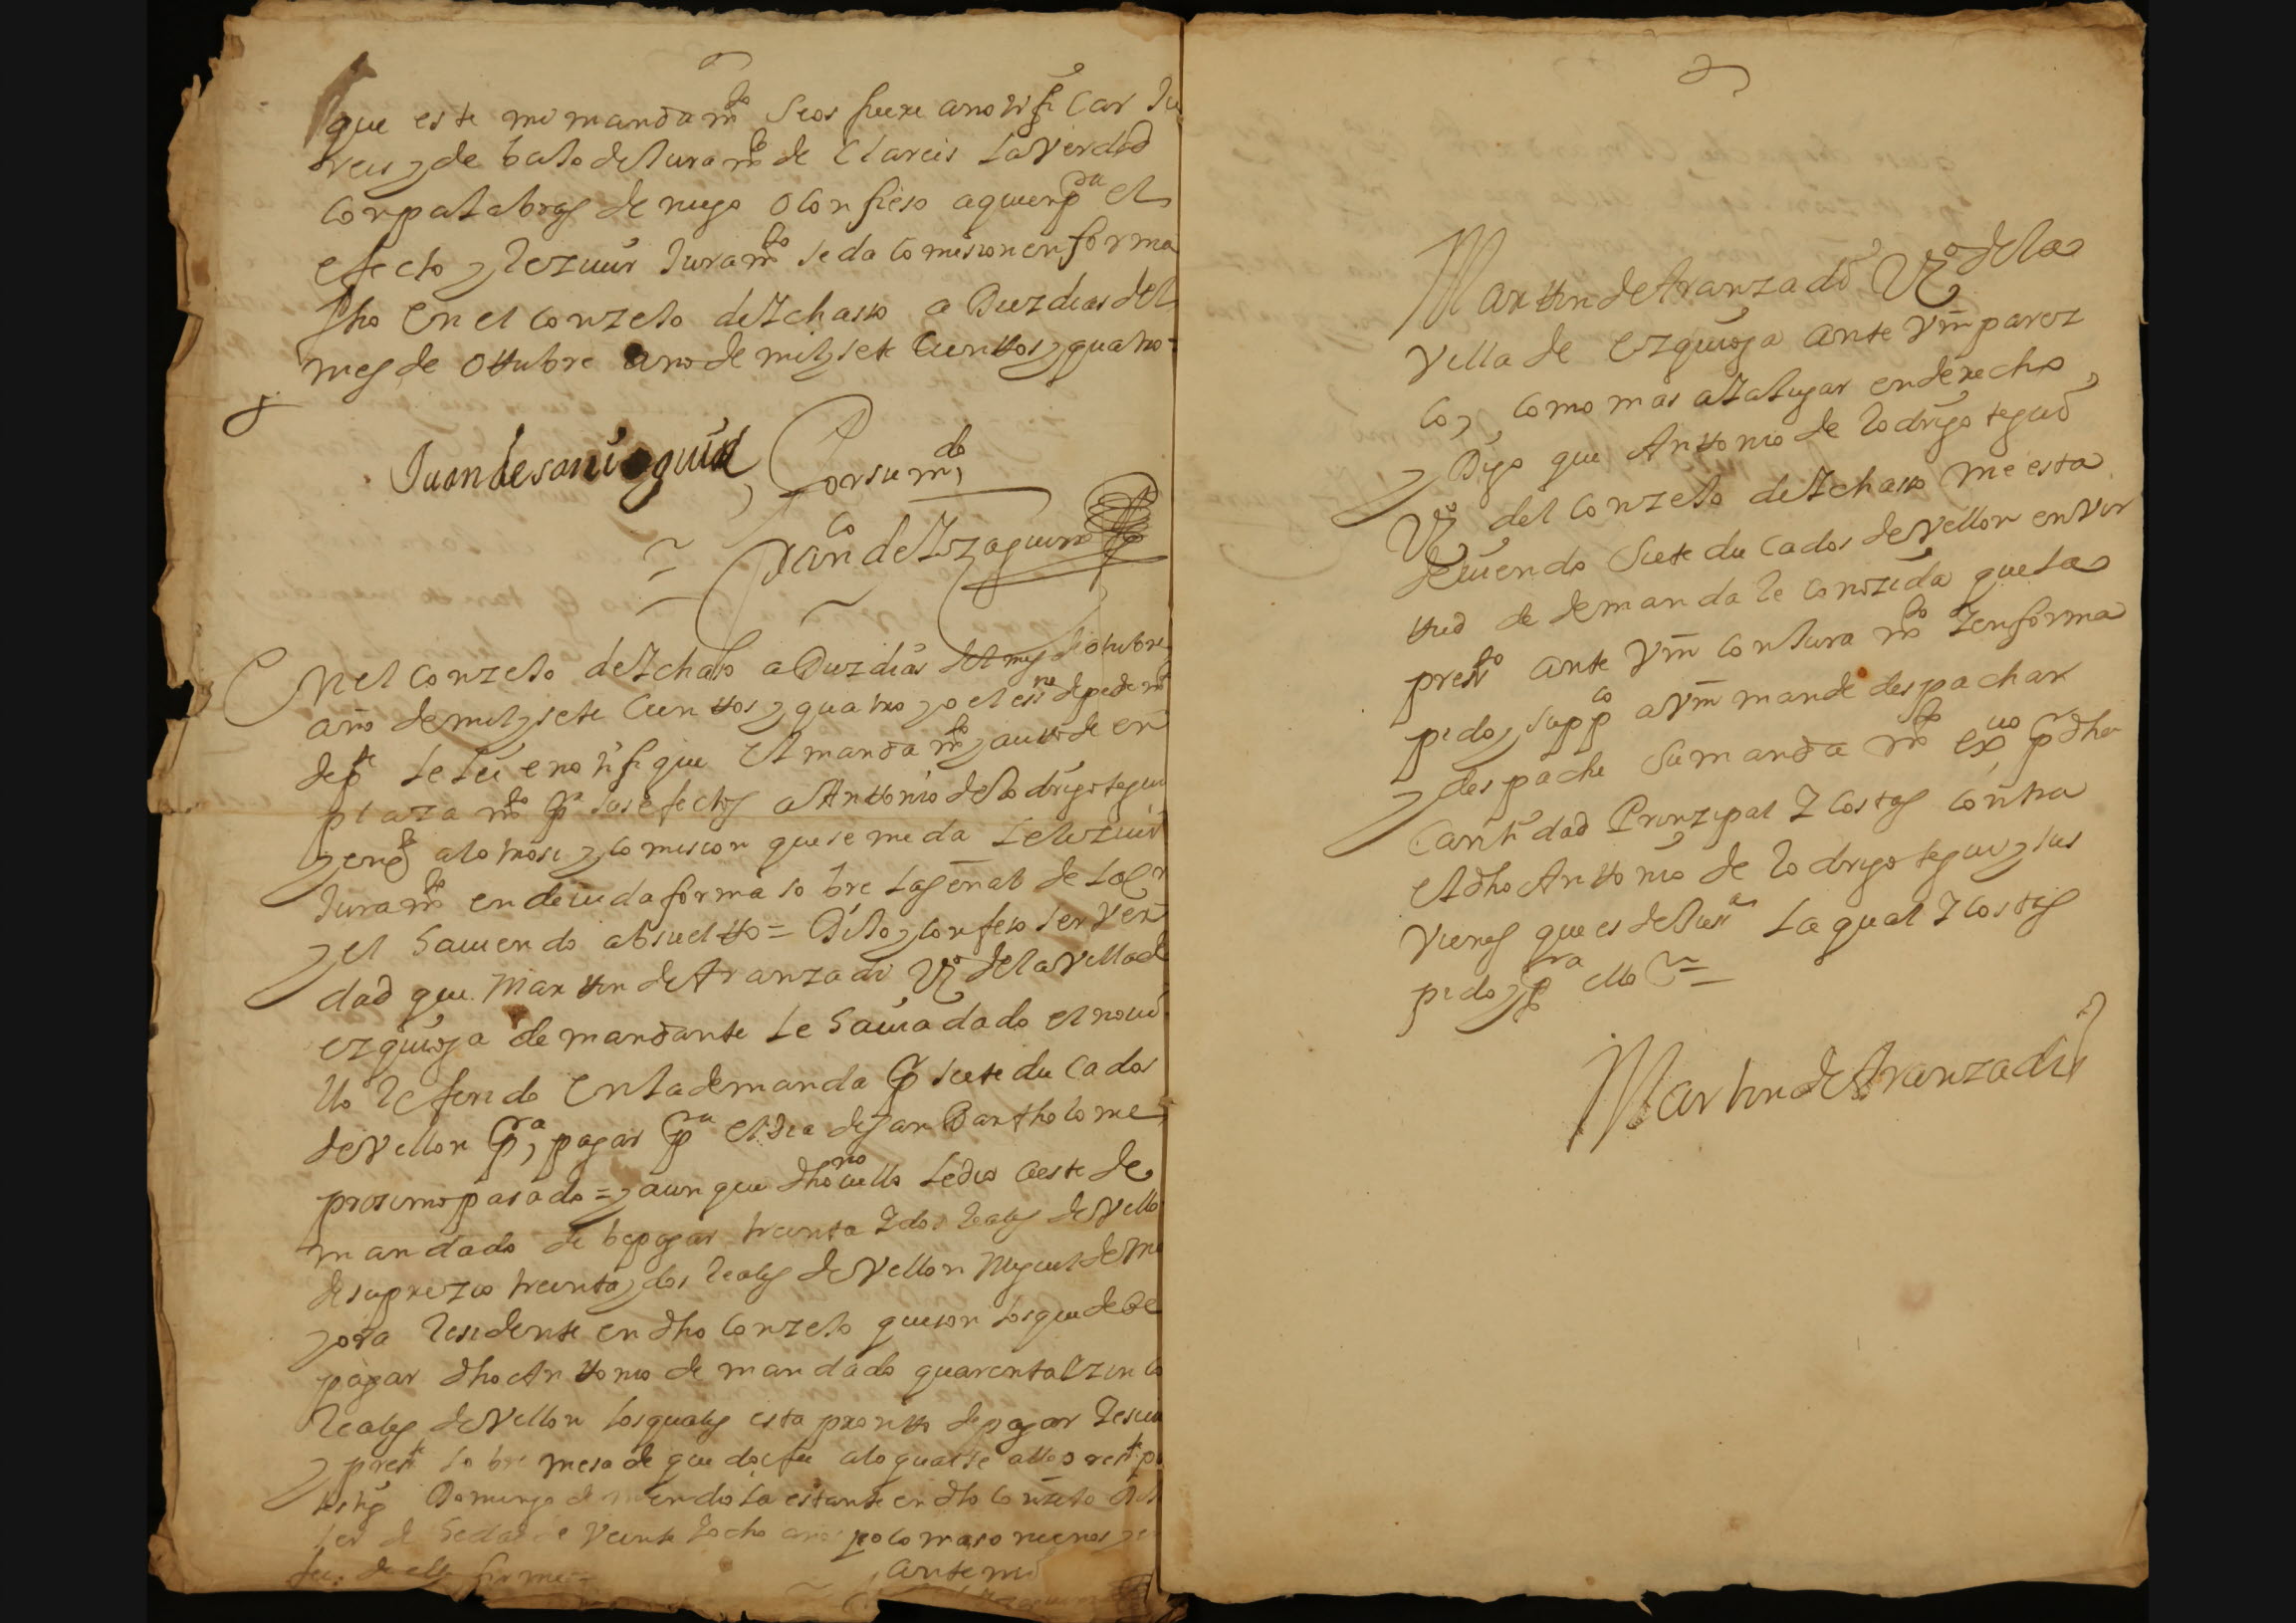 que este mi mandamto seos fuere a notificar Ju
reis y de baJo de Juramto de clareis la Verdad
con palabras de niego o confieso a quien pra el
efecto y rezuir Juramto se da comision en forma
fho en el conzeJo de Ychasso a Diez dias del
mes de ottubre ano de mil y sete cienttos y quatro =
Por su mdo
Franco de Yzaguirre
En el conzeJo de Ychaso a Diez dias del mes de otubre
año de mil y sete cienttos y quatro yo el essno de pedimto
de pte lei e notifique el mandamto y auto de en
plazamto pa sus efectos a Anttonio de Rodrigo tegui
y en pa a lo tross y comision que se me da le rezeui
Juramto en deuida forma so bre la señal de la
y el hauiendo absueltto = DiJo y confeso ser Ver
dad que Marttin de Aranzadi Vo de la Villa de
ezquioga demandante le hauia dado el noui
llo referido en la demanda pr siete ducados
de Vellon pra pagar pra el dia de san Bartholome
proximo pasado = y aunque dho nouillo le dio a este de
mandado de be pagar treinta y dos reales de Vello
de su prezio treinta y dos reales de Vellon Miguel de Ma
yora residente en dho conzeJo que son los que debe
pagar dho Anttonio demandado quarenta e zinco
reales de Vellon los quales esta prontto de pagar
y presto so bre mesa de que doi fee a lo qual se allo prest pr
testigo Domingo de mendiola estante en dho conzeJo
ser de hedad de Veinte y ocho anos poco mas o menos y en
fee de ello firme =
ante mi
Marttin de Aranzadi Vo de la
Villa de ezquioga ante Vm parez
co y como mas alla lugar en derecho
y Digo que Anttonio de Rodrigo tegui
Vo del conzeJo de Ychasso me esta
deuiendo siete ducados de Vellon en Vir
ttud de demanda reconozida que la
presto ante Vm con Juramto y en forma
pido y suppco a Vm mande despachar
y despache su mandamto exuo pr dha
cantidad Prinzipal y costas contra
el dho Anttonio de Rodrigo tegui y sus
Vienes que es de Jusa la qual y costas
pido y pra ello =
Martin de Aranzadi